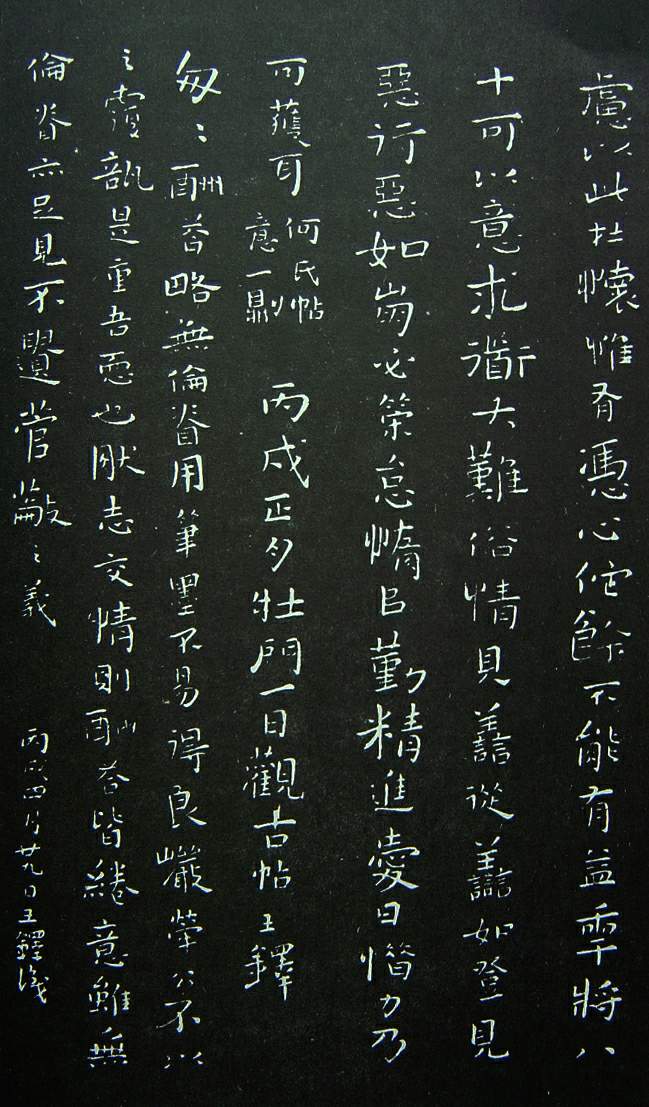 慮以此壯懷惟有憑心佗餘不能有益秊將八
十可以意求衜大難俗情見譱從譱如登見
惡行惡如崩必策怠惰以勤精進愛日惜力乃
可獲耳
何氏帖
意一則
丙戌正夕壯門一日觀古帖王鐸
匆匆酬荅略無倫脊用筆墨不易得良巖犖公不以
之覆瓿是重吾恧也厥志交情則酬荅皆綣意雖無
倫脊亦足見不菅蒯之義
丙戌四月廿九日王鐸識